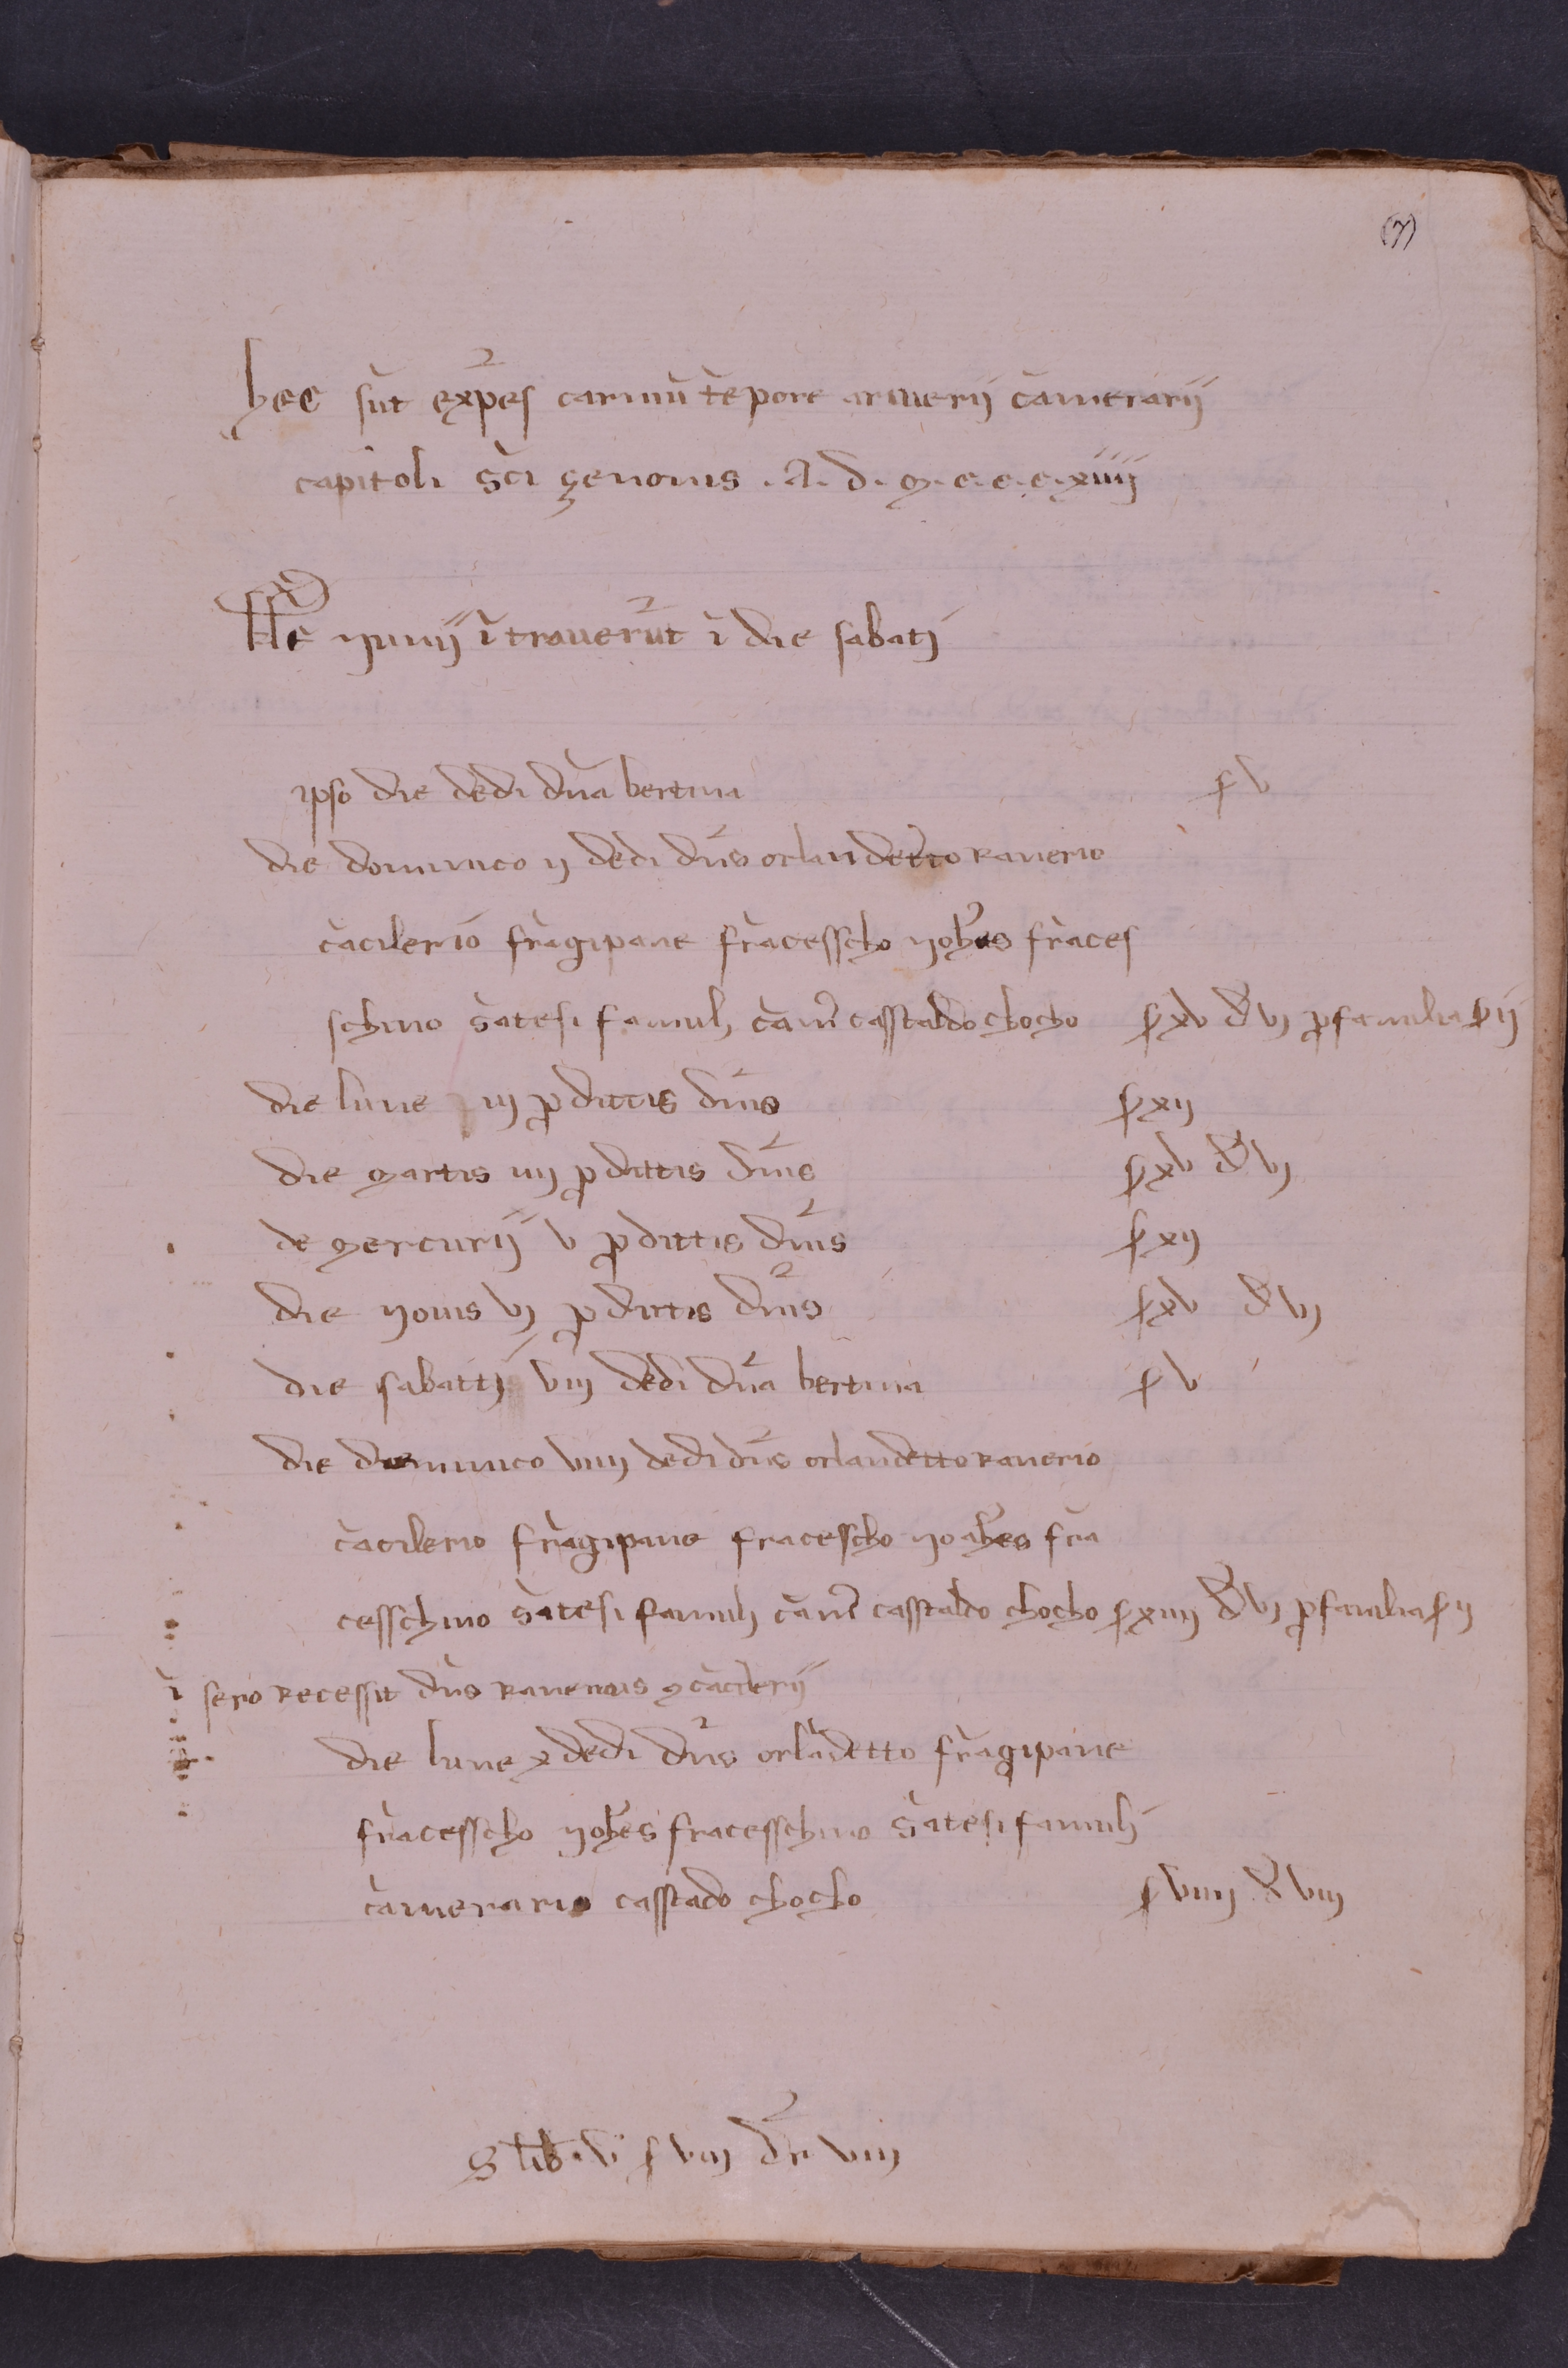 (7)
hec sūt exp̄es carniū tēpore arnuerij camerarij
capitoli sc̄i zenonis . A. d. m. c. c. c. xiiij
kl̄e yunij ītrauerūt ī die sabatj
ipso die dedi dn̄a bertina ſ v
die dominico ij dedi dn̄is orlandetto ranerio
cācilerio frāgipane frācesscho yoh̄es frāces
schino sātesi famuli cam̄ casstaldo chocho ſ xv d̄ vj ꝑ familia ſ ij
die lune iij ꝑ dittis dn̄is ſ xij
die martis iiij ꝑ dittis dn̄is ſ xv d̄ vj
de mercurij v ꝑ dittis dn̄is ſ xij
die yovis vj ꝑ dittis dn̄is ſ xv d̄ vj
die sabattj viij dedi dn̄a bertina ſ v
die dominico viiij dedi dn̄is orlandetto ranerio
cācilerio frāgipane fracescho yoah̄es frā
cesschino sātesi famuli cam̄ casstaldo chocho ſ xiiij d̄ vj ꝑ familia ſ ij
ī sero recessit dn̄s ranerius ꝯcācilerij
die lune x dedi dn̄is orlādetto frāgipane
frācesscho yoh̄es fracesschino sātesi famuli
camerario casstado chocho ſ viiij d̄ viij
S lib. vj ſ viij dr̄ viij